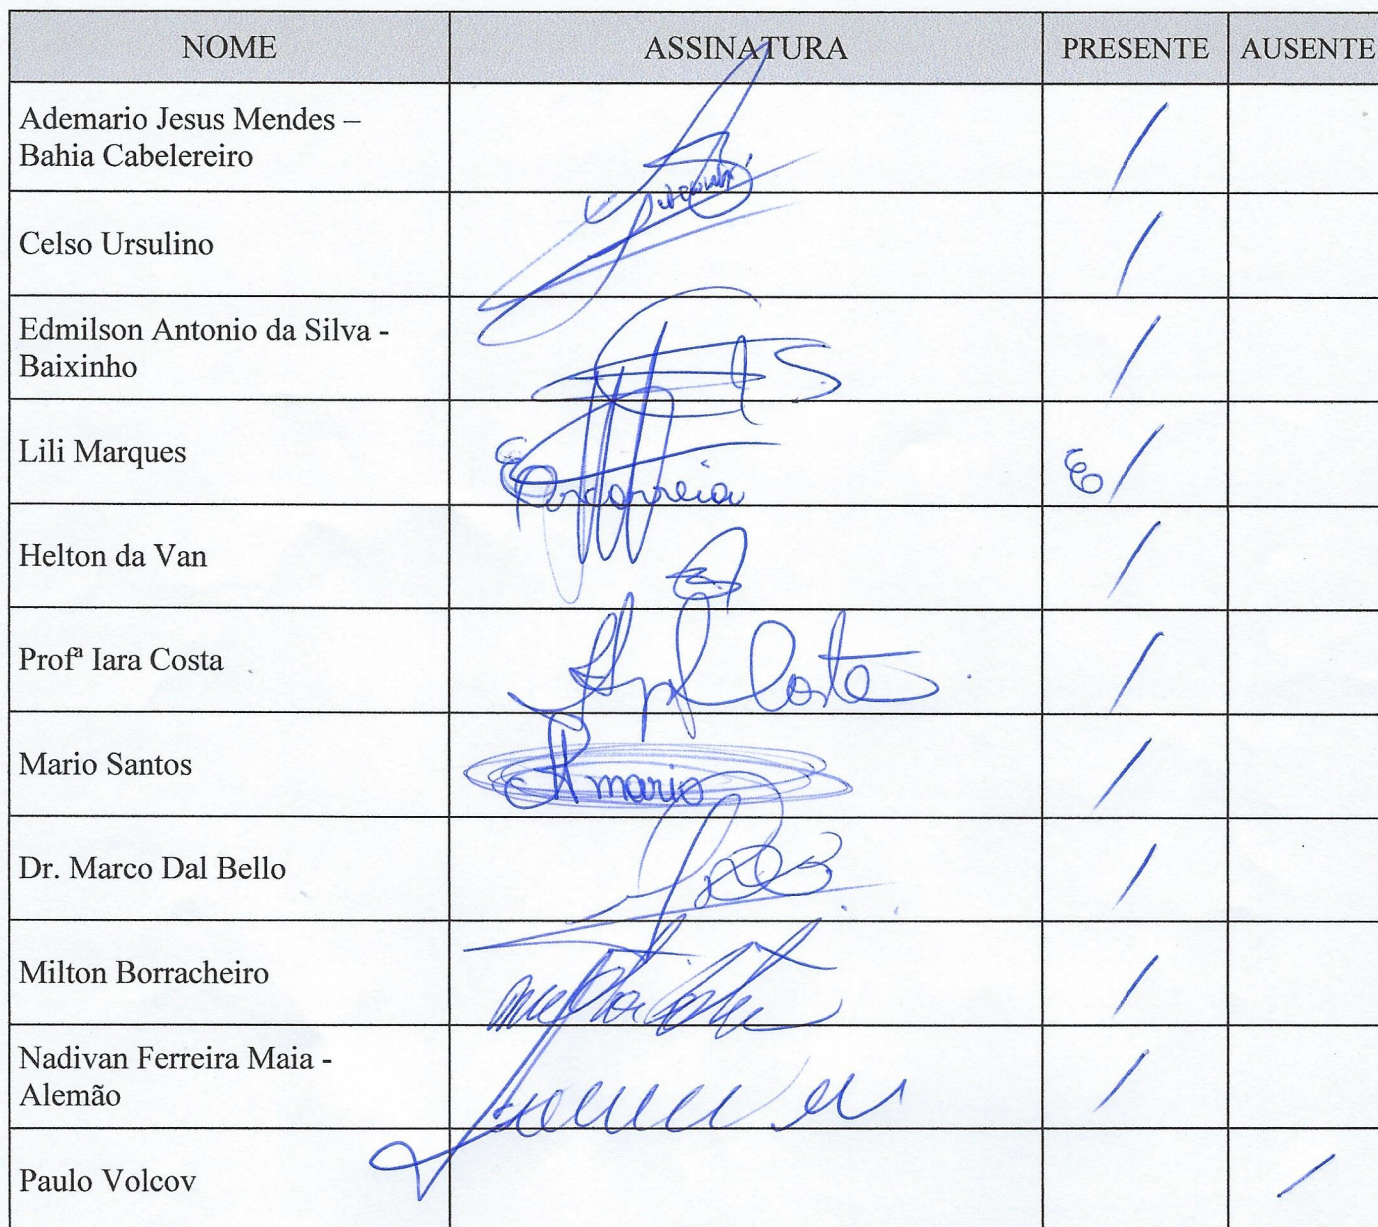 NOME ASSINATURA PRESENTE AUSENTE
Ademario Jesus Mendes –
Bahia Cabelereiro
/
Celso Ursulino
/
Edmilson Antonio da Silva -
Baixinho
/
Lili Marques
/
Helton da Van
/
Profª Iara Costa
Costa
/
Mario Santos
mario
/
Dr. Marco Dal Bello
/
Milton Borracheiro
/
Nadivan Ferreira Maia -
Alemão
/
Paulo Volcov
/